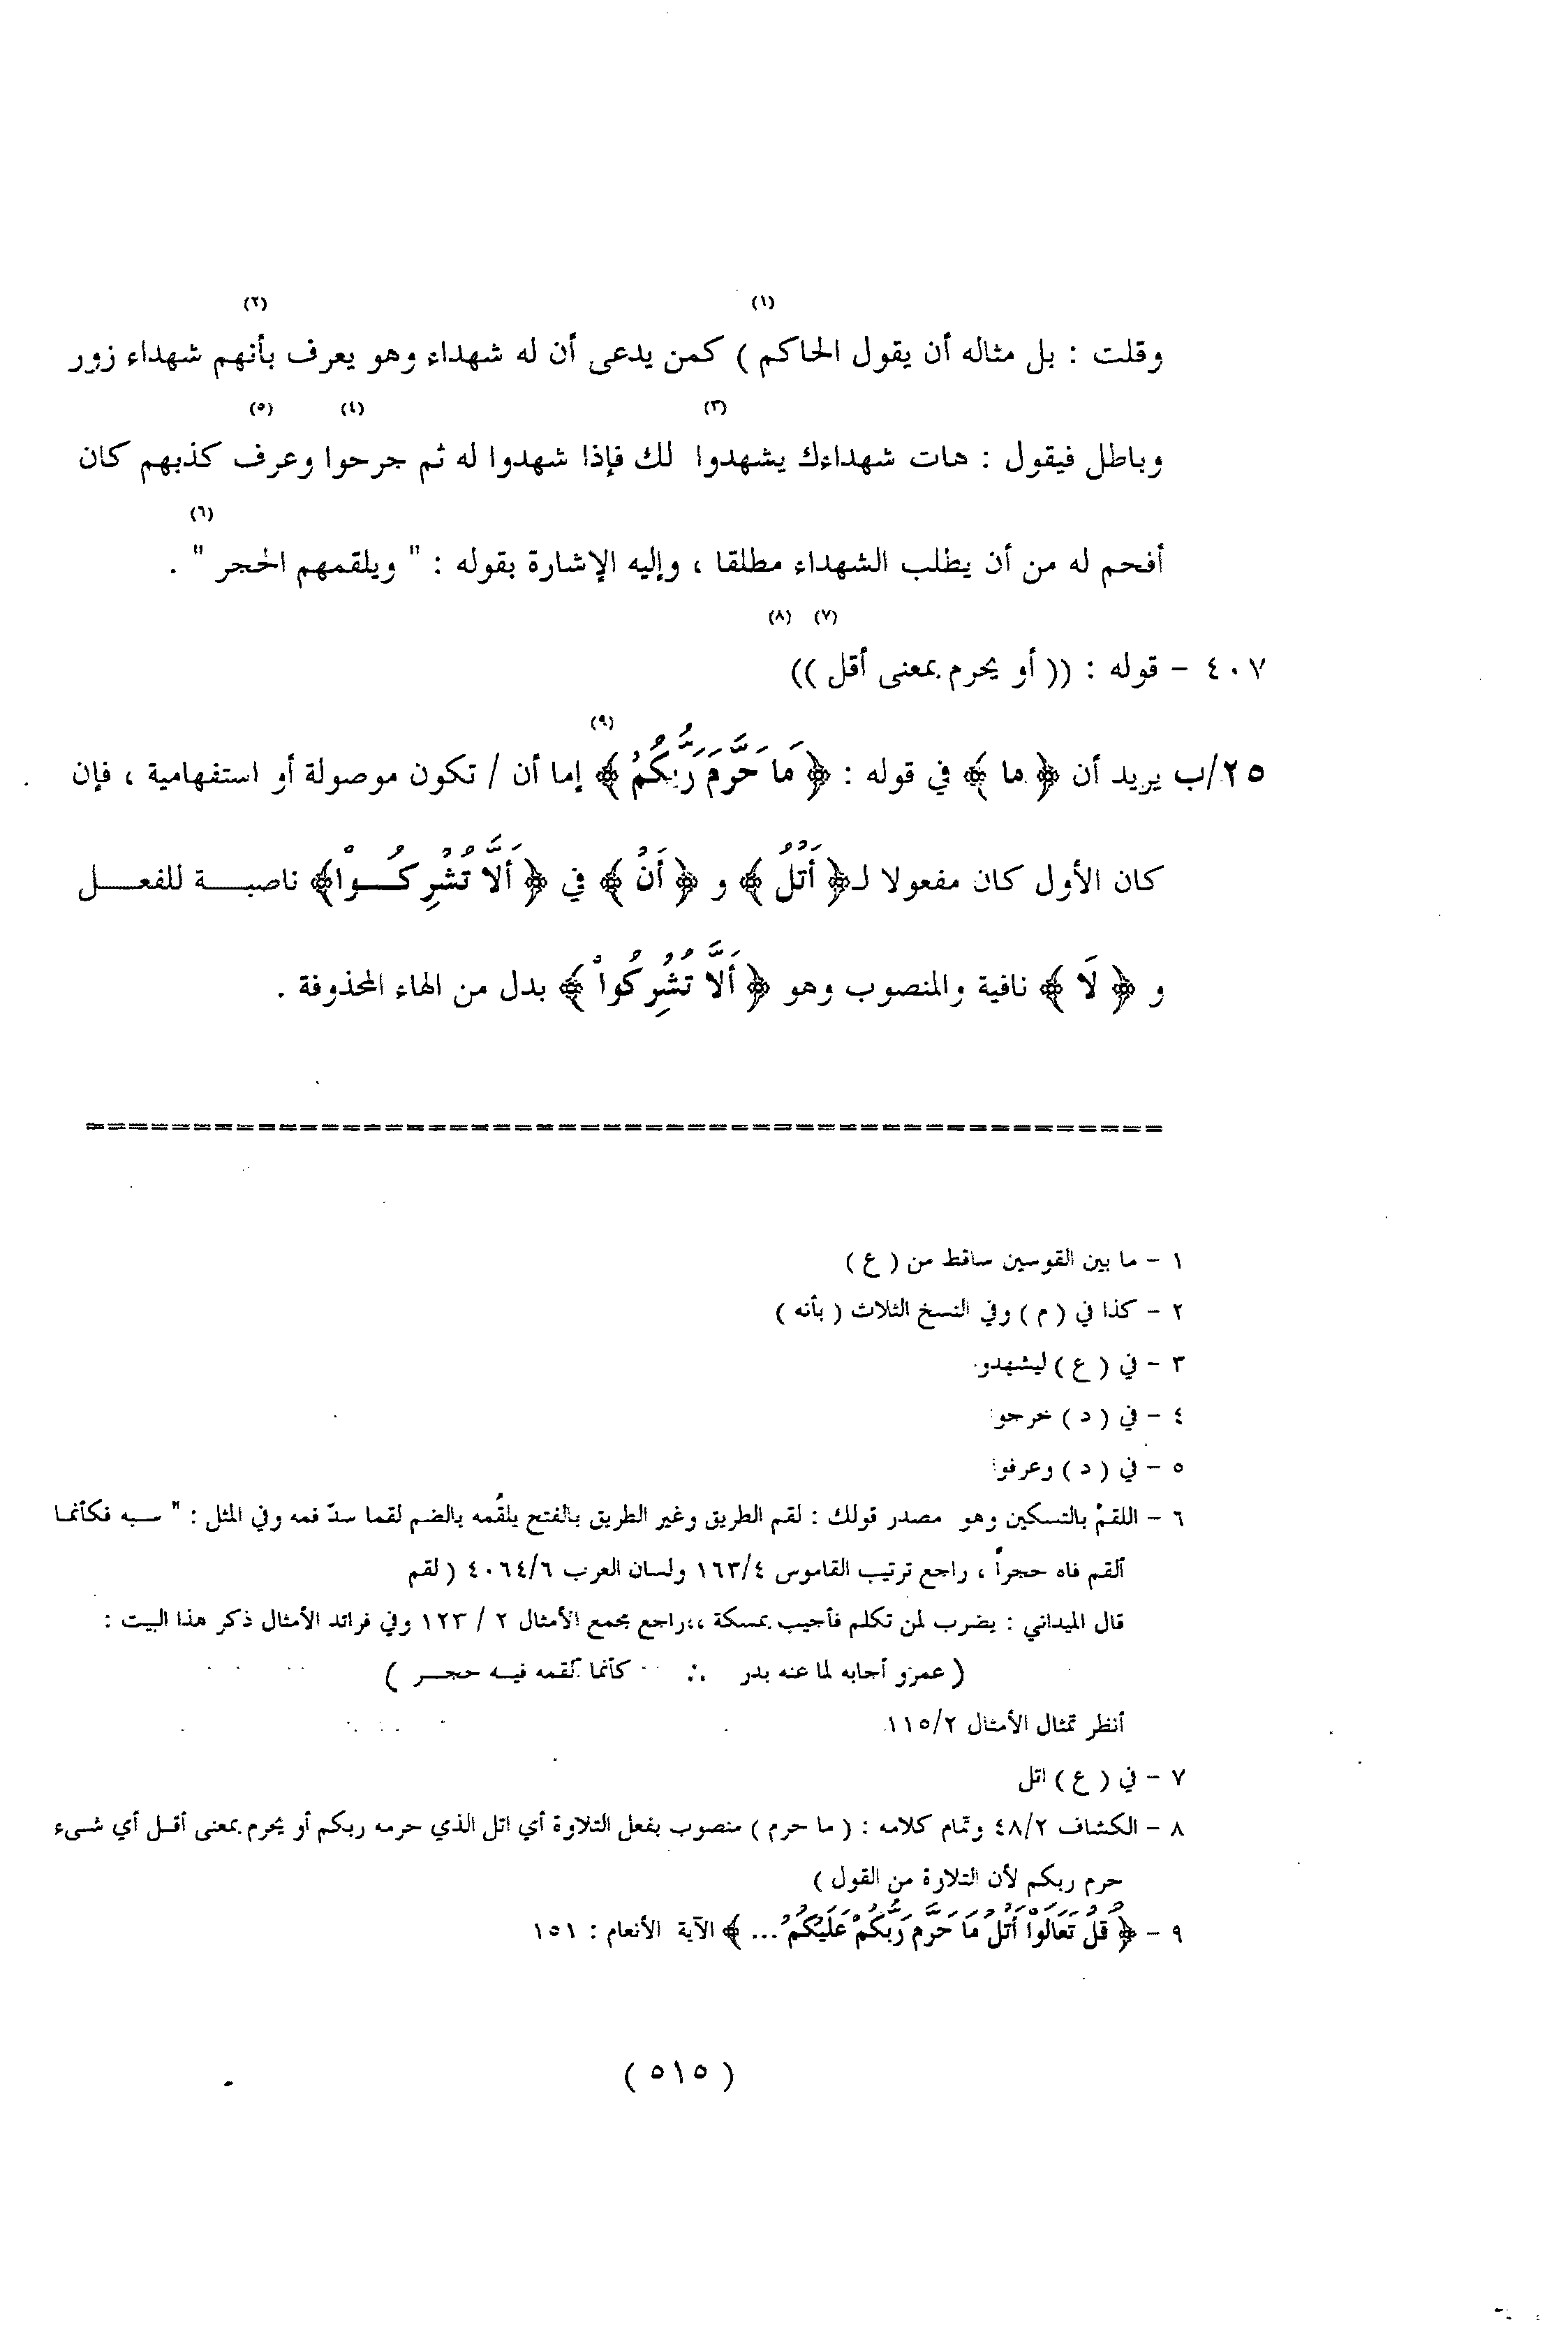 (١) (٢)
وقلت : بل مثاله أن يقول الحاكم ) كمن يدعى أن له شهداء وهو يعرف بأنهم شهداء زور
(٣) (٤) (٥)
وباطل فيقول : هات شهداءك يشهدوا لك فإذا شهدوا له ثم جرحوا وعرف كذبهم كان
(٦)
أفحم له من أن يطلب الشهداء مطلقا ، وإليه الإشارة بقوله : " ويلقمهم الحجر " .
(٧) (٨)
٤٠٧ - قوله : (( أو يحرم بمعنى أقل ))
(٩)
٢٥/ب يريد أن ﴿ ما ﴾ في قوله : ﴿ مَا حَرَّمَ رَبُّكُمْ ﴾ إما أن / تكون موصولة أو استفهامية ، فإن
كان الأول كان مفعولا لـ﴿ أَتْلُ ﴾ و ﴿ أَنْ ﴾ في ﴿ أَلَّا تُشْرِكُـــوْا﴾ ناصبـــة للفعـــل
و ﴿ لَا ﴾ نافية والمنصوب وهو ﴿ أَلَّا تُشْرِكُواْ ﴾ بدل من الهاء المحذوفة .
==================================================
١ - ما بين القوسين ساقط من ( ع )
٢ - كذا في ( م ) وفي النسخ الثلاث ( بأنه )
٣ - في ( ع ) ليشهدو
٤ - في ( د ) خرجوا
٥ - في ( د ) وعرفوا
٦ - اللقمْ بالتسكين وهو مصدر قولك : لقم الطريق وغير الطريق بالفتح يلقُمه بالضم لقما سدّ فمه وفي المثل : " سبه فكأنما
ألقم فاه حجراً ، راجع ترتيب القاموس ١٦٣/٤ ولسان العرب ٤٠٦٤/٦ ( لقم
قال الميداني : يضرب لمن تكلم فأجيب بمسكة ،،راجع مجمع الأمثال ٢ / ١٢٣ وفي فرائد الأمثال ذكر هذا البيت :
( عمرو أجابه لما عنه بدر ∴ كأنما لقمه فيه حجـر )
أنظر تمثال الأمثال ١١٥/٢
٧ - في ( ع ) اتل
٨ - الكشاف ٤٨/٢ وتمام كلامه : ( ما حرم ) منصوب بفعل التلاوة أي اتل الذي حرمه ربكم أو يحرم بمعنى أقل أي شىء
حرم ربكم لأن التلاوة من القول )
٩ - ﴿ قُلْ تَعَالَوْاْ أَتْلُ مَا حَرَّمَ رَبُّكُمْ عَلَيْكُمْ ... ﴾ الآية الأنعام : ١٥١
( ٥١٥ )